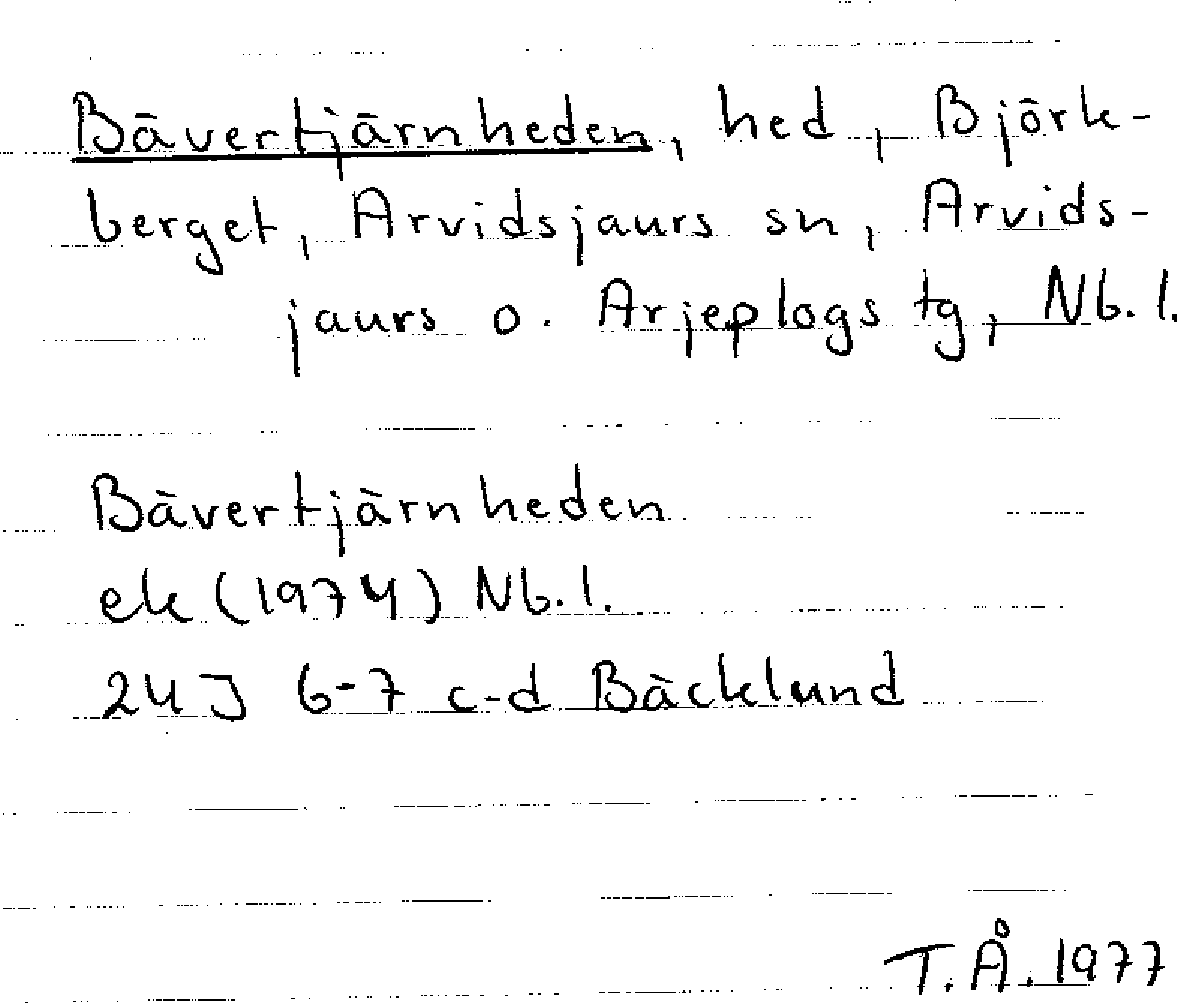 Bävertjärnheden, hed, Björk-
berget, Arvidsjaurs sn, Arvids-
jaurs o. Arjeplogs tg, Nb. l.
Bävertjärnheden
ek (1974) Nb. l.
24 J 6-7 c-d Bäcklund
T. Å. 1977